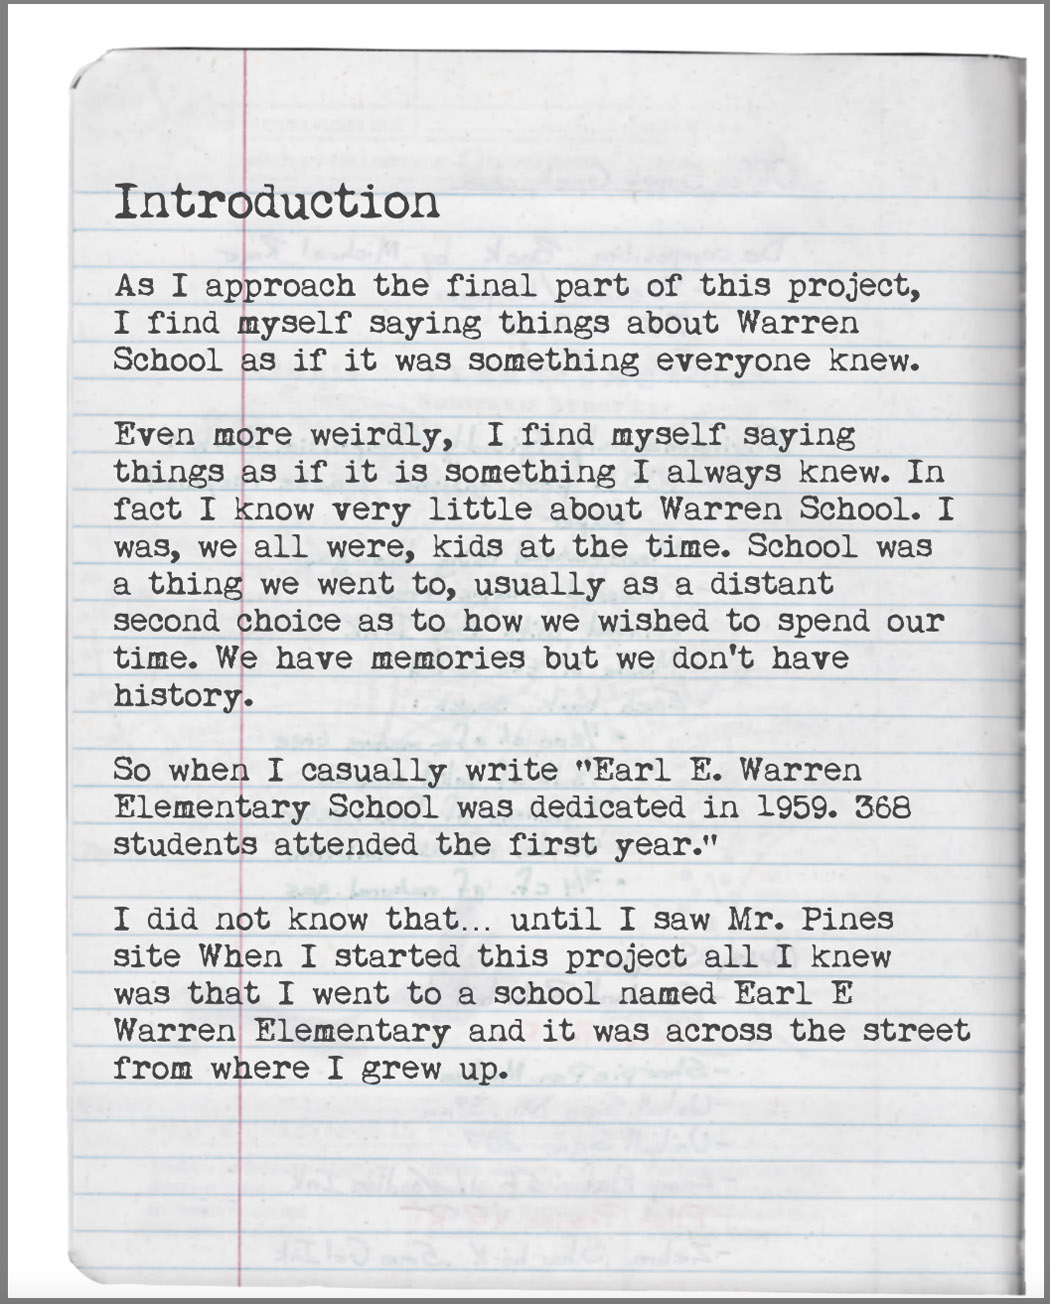 Introduction
As I approach the final part of this project,
I find myself saying things about Warren
School as if it was something everyone knew.
Even more weirdly, I find myself saying
things as if it is something I always knew. In
fact I know very little about Warren School. I
was, we all were, kids at the time. School was
a thing we went to, usually as a distant
second choice as to how we wished to spend our
time. We have memories but we don't have
history.
So when I casually write "Earl E. Warren
Elementary School was dedicated in 1959. 368
students attended the first year."
I did not know that... until I saw Mr. Pines
site When I started this project all I knew
was that I went to a school named Earl E
Warren Elementary and it was across the street
from where I grew up.